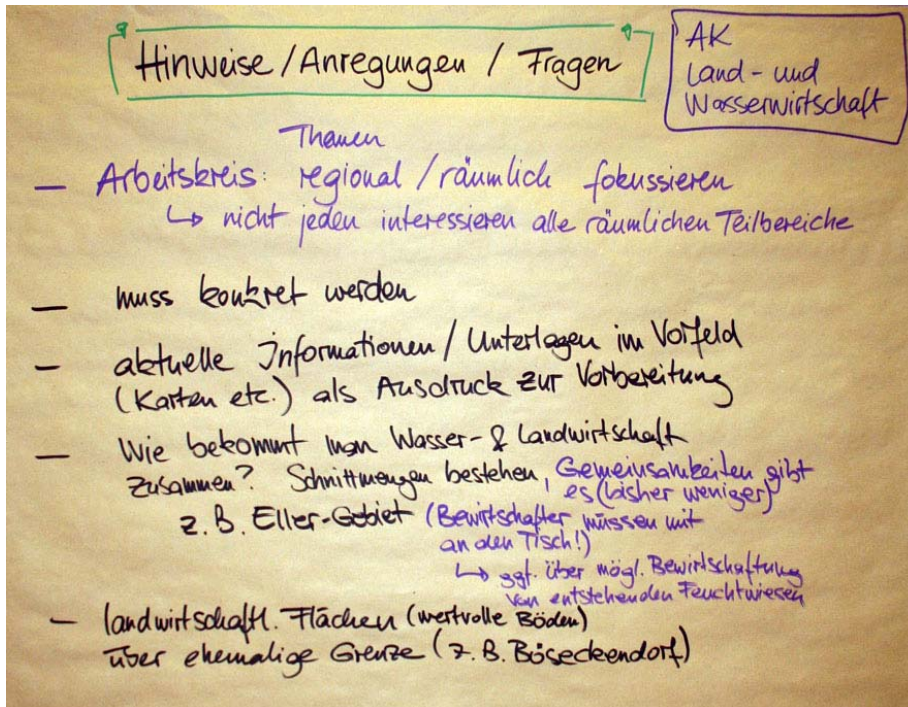 Hinweise / Anregungen / Fragen
AK
Land- und
Wasserwirtschaft
Themen
– Arbeitskreis: regional / räumlich fokussieren
↳ nicht jeden interessieren alle räumlichen Teilbereiche
– muss konkret werden
– aktuelle Informationen / Unterlagen im Vorfeld
(Karten etc.) als Ausdruck zur Vorbereitung
– Wie bekommt man Wasser- & Landwirtschaft
zusammen? Schnittmengen bestehen, Gemeinsamkeiten gibt
es (bisher weniger)
z. B. Eller-Gebiet (Bewirtschafter müssen mit
an den Tisch!)
↳ ggf. über mögl. Bewirtschaftung
von entstehenden Feuchtwiesen
– landwirtschaftl. Flächen (wertvolle Böden)
über ehemalige Grenze (z. B. Böseckendorf)